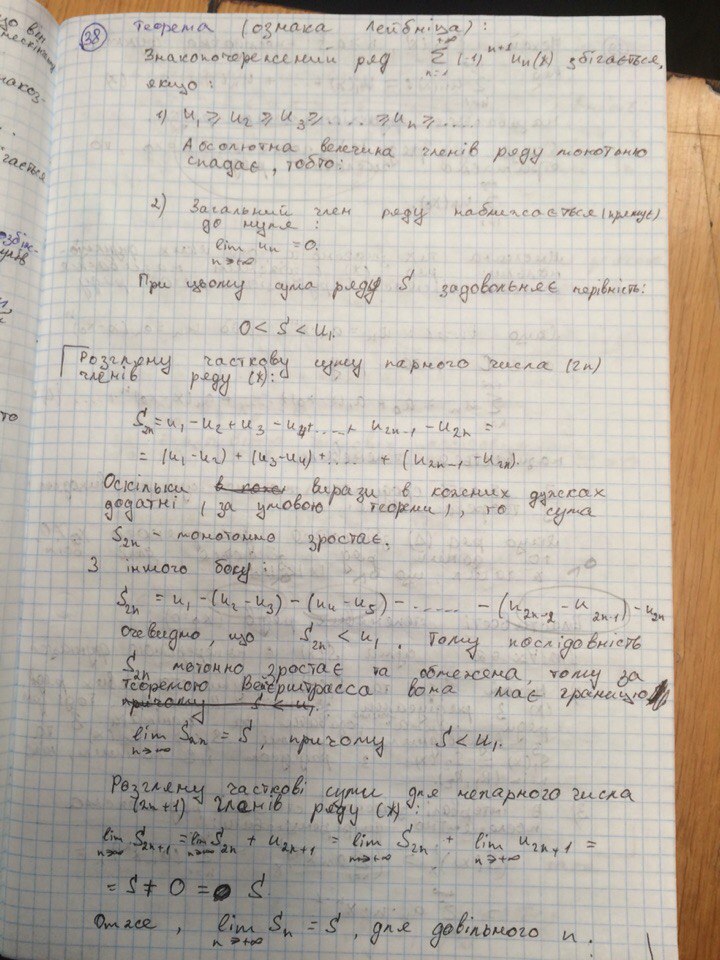 38 Теорема (ознака Лейбніца):
Знакопочережений ряд \sum_{n=1}^{+\infty} (-1)^{n+1} u_n (*) збігається,
якщо:
1) u_1 ≥ u_2 ≥ u_3 ≥ ..... ≥ u_n ≥ .....
Абсолютна величина членів ряду монотонно
спадає, тобто:
2) Загальний член ряду наближається (прямує)
до нуля:
lim_{n→+∞} u_n = 0.
При цьому сума ряду S задовольняє нерівність:
0 < S < u_1.
Розгляну часткову суму парного числа (2n)
членів ряду (*):
S_{2n} = u_1 - u_2 + u_3 - u_4 + ..... + u_{2n-1} - u_{2n} =
= (u_1 - u_2) + (u_3 - u_4) + ..... + (u_{2n-1} - u_{2n}).
Оскільки вирази в кожних дужках
додатні (за умовою теореми), то сума
S_{2n} - монотонно зростає.
З іншого боку:
S_{2n} = u_1 - (u_2 - u_3) - (u_4 - u_5) - ...... - (u_{2n-2} - u_{2n-1}) - u_{2n}
очевидно, що S_{2n} < u_1. Тому послідовність
S_{2n} мотонно зростає та обмежена, тому за
теоремою Веєрштрасса вона має границю
причому S < u_1.
lim_{n→+∞} S_{2n} = S, причому S < u_1.
Розгляну часткові суми для непарного числа
(2n+1) членів ряду (*):
lim_{n→+∞} S_{2n+1} = lim_{n→+∞} S_{2n} + u_{2n+1} = lim_{n→+∞} S_{2n} + lim_{n→+∞} u_{2n+1} =
= S + 0 = S.
Отже, lim_{n→+∞} S_n = S, для довільного n.